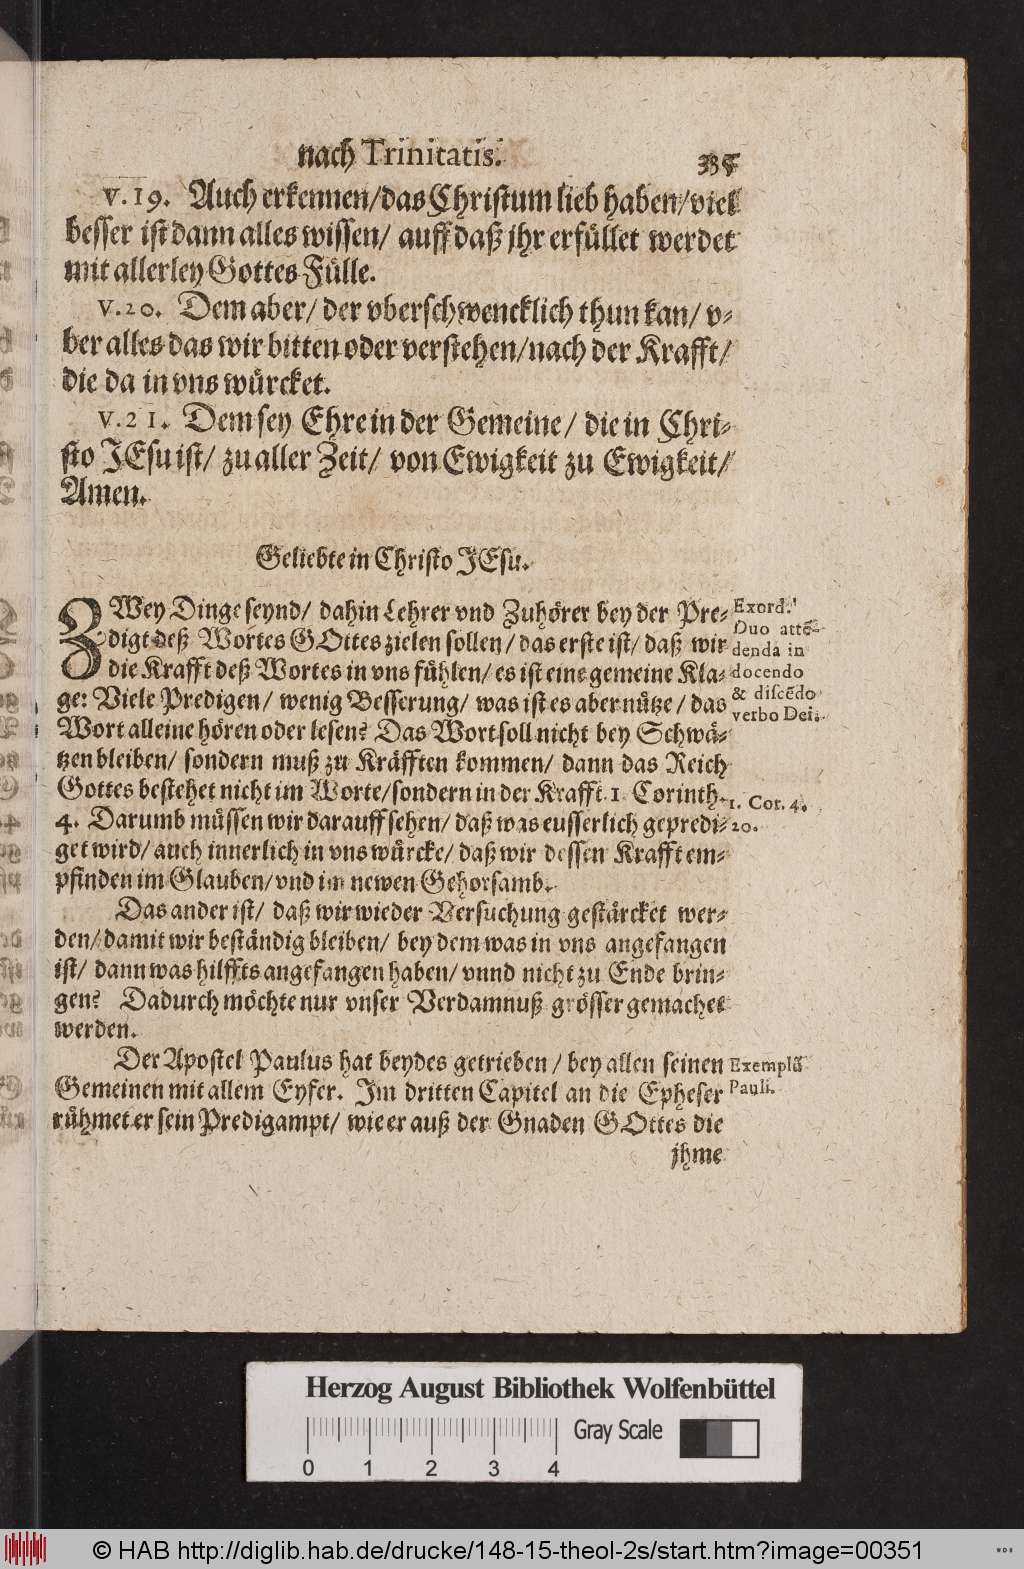 nach Trinitatis. 335
V. 19. Auch erkennen/ das Christum lieb haben/ viel
besser ist dann alles wissen/ auff daß jhr erfüllet werdet
mit allerley Gottes Fülle.
V. 20. Dem aber/ der vberschwencklich thun kan/ v-
ber alles das wir bitten oder verstehen/ nach der Krafft/
die da in vns würcket.
V. 21. Dem sey Ehre in der Gemeine/ die in Chri-
sto JEsu ist/ zu aller Zeit/ von Ewigkeit zu Ewigkeit/
Amen.
Geliebte in Christo JEsu.
ZWey Dinge seynd/ dahin Lehrer vnd Zuhörer bey der Pre-
digt deß Wortes GOttes zielen sollen/ das erste ist/ daß wir
die Krafft deß Wortes in vns fühlen/ es ist eine gemeine Kla-
ge: Viele Predigen/ wenig Besserung/ was ist es aber nütze/ das
Wort alleine hören oder lesen? Das Wort soll nicht bey Schwä-
tzen bleiben/ sondern muß zu Kräfften kommen/ dann das Reich
Gottes bestehet nicht im Worte/ sondern in der Krafft. 1. Corinth.
4. Darumb müssen wir darauff sehen/ daß was eusserlich gepredi-
get wird/ auch innerlich in vns würcke/ daß wir dessen Krafft em-
pfinden im Glauben/ vnd im newen Gehorsamb.
Das ander ist/ daß wir wieder Versuchung gestärcket wer-
den/ damit wir beständig bleiben/ bey dem was in vns angefangen
ist/ dann was hilffts angefangen haben/ vnnd nicht zu Ende brin-
gen? Dadurch möchte nur vnser Verdamnuß grösser gemachet
werden.
Der Apostel Paulus hat beydes getrieben/ bey allen seinen
Gemeinen mit allem Eyfer. Im dritten Capitel an die Epheser
rühmet er sein Predigampt/ wie er auß der Gnaden GOttes die
jhme
Exord.
Duo attē-
denda in
docendo
& discēdo
verbo Dei.
1. Cor. 4.
20.
Exemplū
Pauli.
Herzog August Bibliothek Wolfenbüttel
Gray Scale
0 1 2 3 4
© HAB http://diglib.hab.de/drucke/148-15-theol-2s/start.htm?image=00351